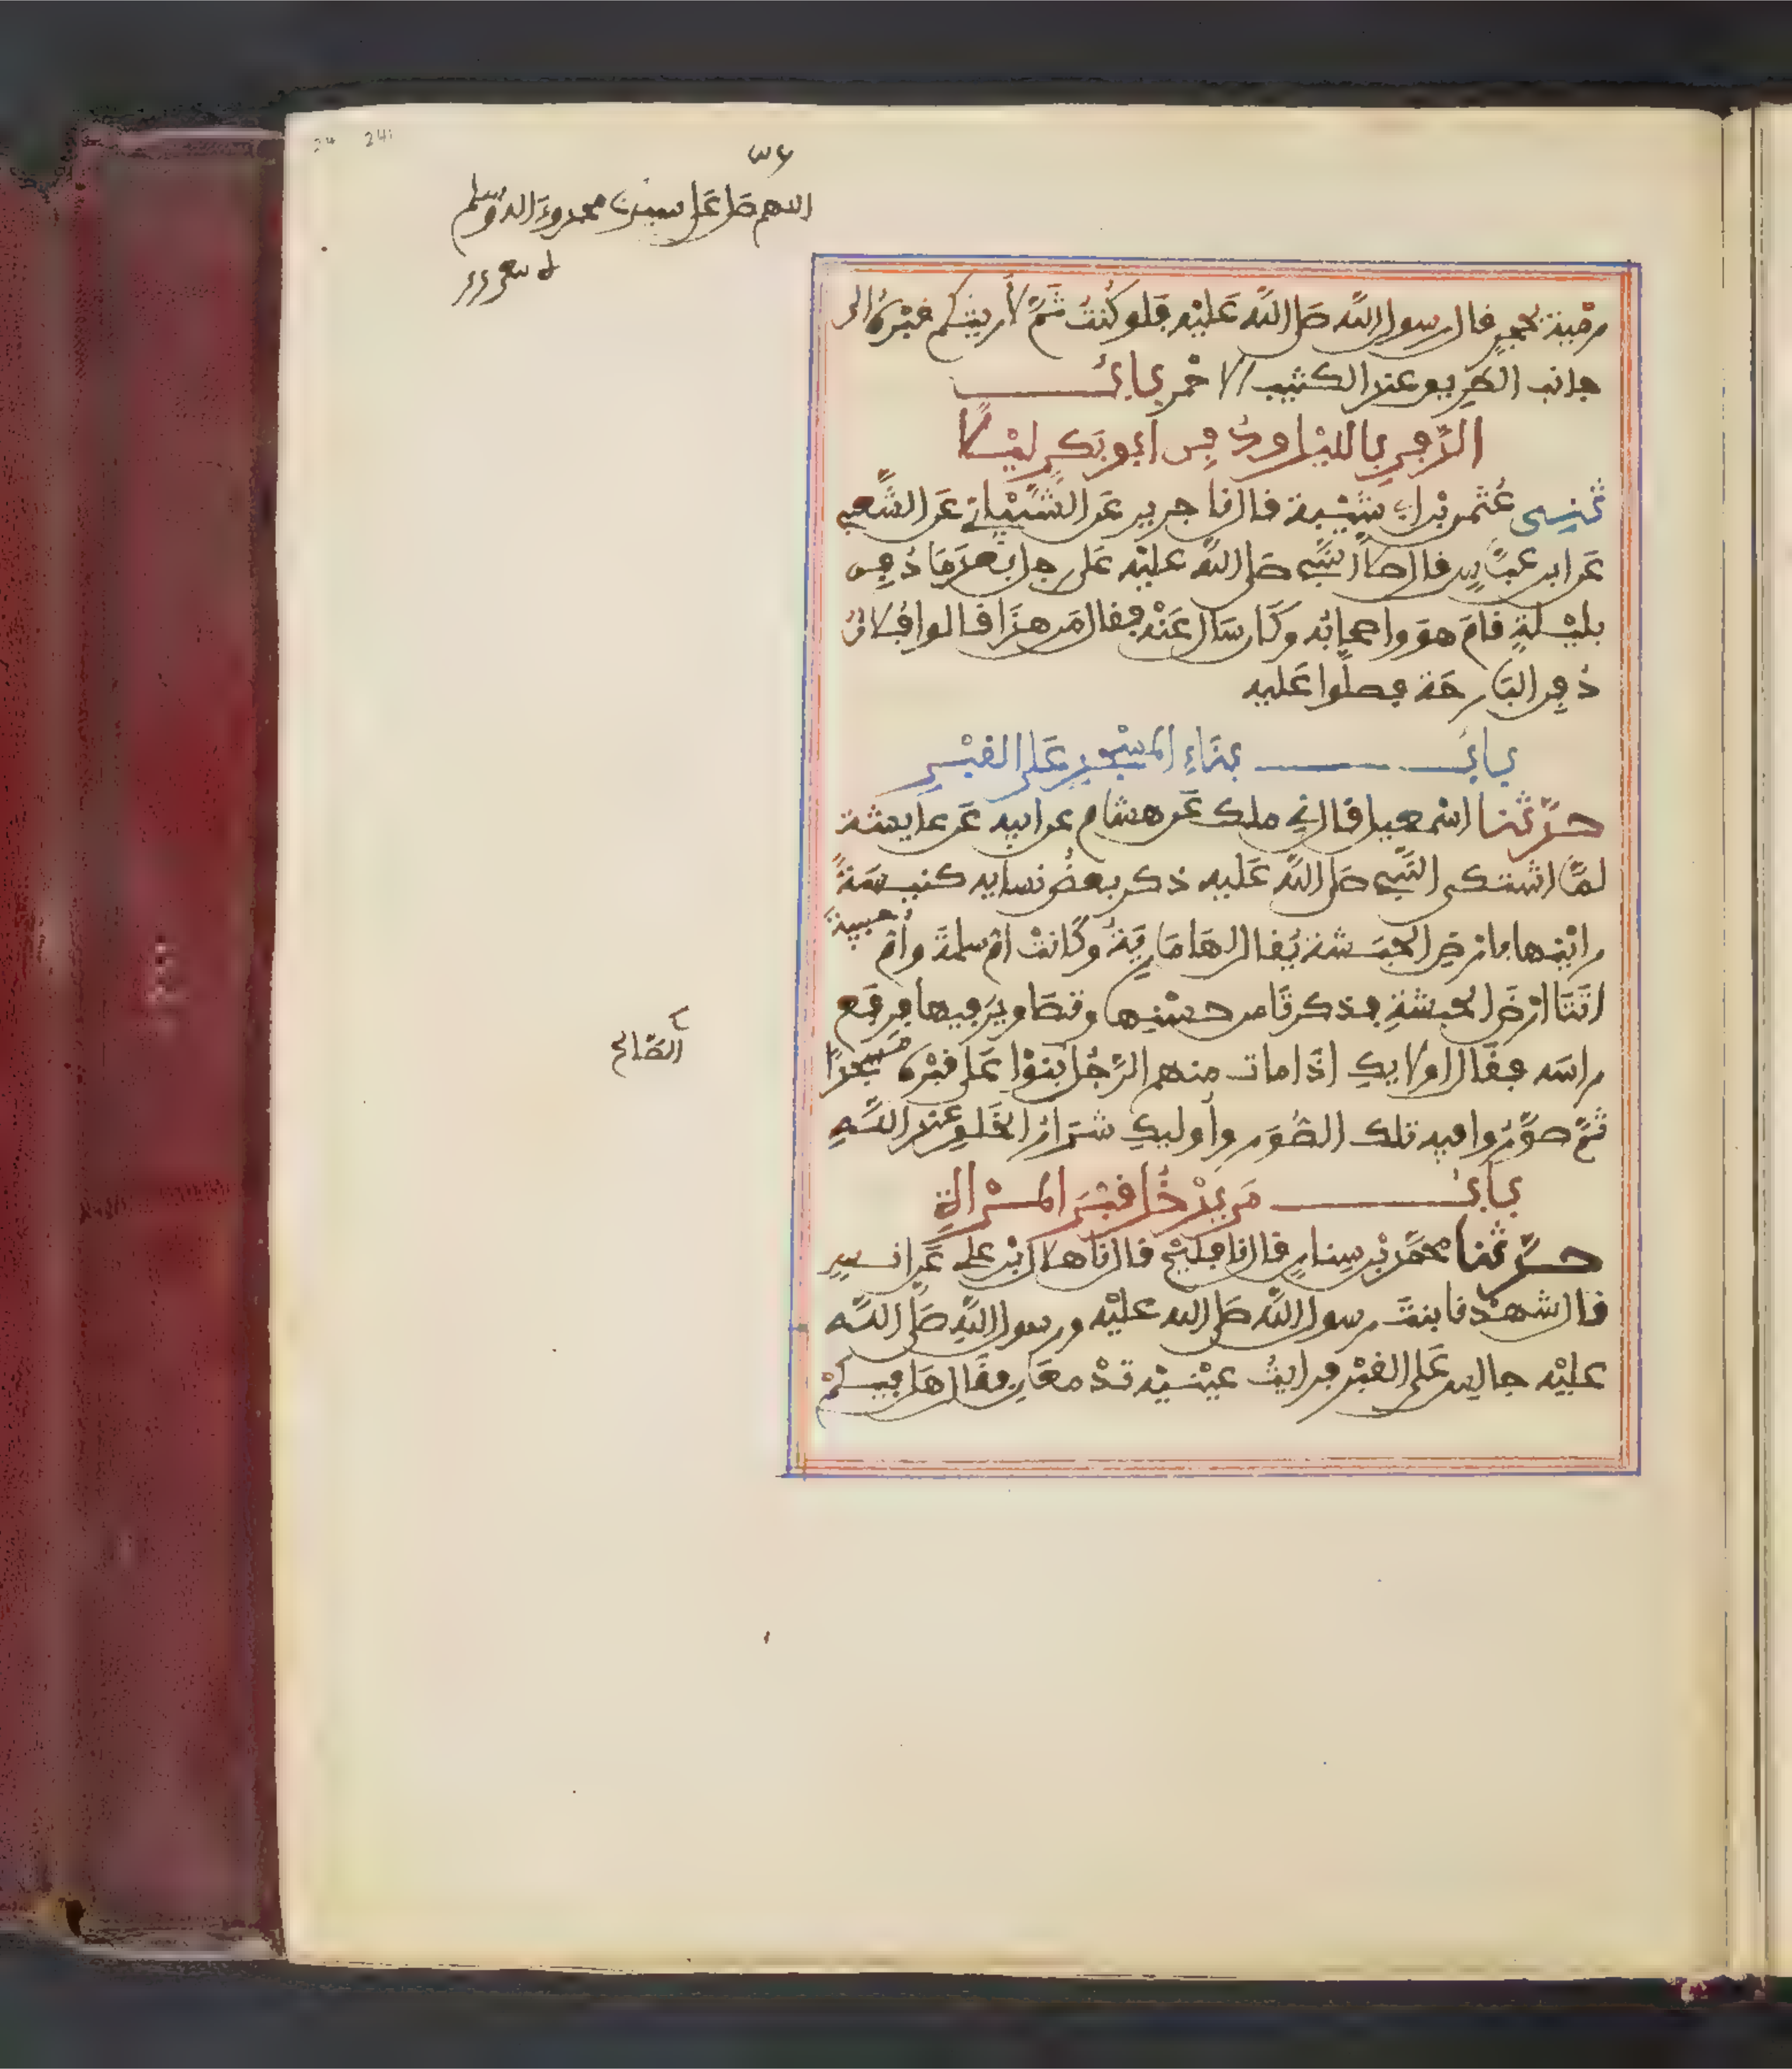 اللهم صل على سيدنا محمد وءاله وسلم
رمية بحجر قال رسول الله صلى الله عليه فلو كنت ثم لأريتكم قبره الى
جانب الطريق عند الكثيب الاحمر باب
الدفن بالليل ودفن ابو بكر ليلا
ثنى عثمن بن ابي شيبة قال نا جرير عن الشيباني عن الشعبي
عن ابن عباس قال صلى النبي صلى الله عليه على رجل بعد ما دفن
بليلة قام هو واصحابه وكان سال عنه فقال من هذا قالوا فلان
دفن البارحة فصلوا عليه
باب بناء المسجد على القبر
حدثنا اسمعيل قال ني ملك عن هشام عن ابيه عن عايشة
لما اشتكى النبي صلى الله عليه ذكر بعض نسايه كنيسة
راينها بارض الحبشة يقال لها مارية وكانت ام سلمة وام حبيبة
اتتا ارض الحبشة فذكرتا من حسنها وتصاوير فيها فرفع
راسه فقال اولايك اذا مات منهم الرجل بنوا على قبره مسجدا
الصالح
ثم صوروا فيه تلك الصور واوليك شرار الخلق عند الله
باب من يدخل قبر المراة
حدثنا محمد بن سنان قال نا فليح قال نا هلال بن علي عن انس
قال شهدنا بنت رسول الله صلى الله عليه ورسول الله صلى الله
عليه جالس على القبر فرايت عينيه تدمعان فقال هل فيكم